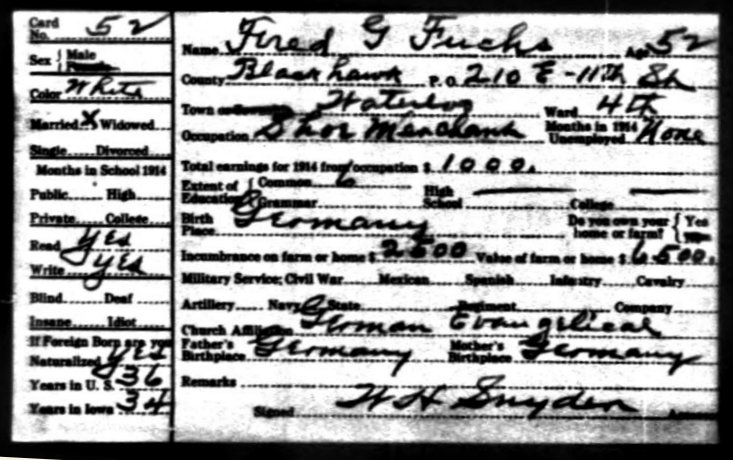 Card No. 52
Sex { Male
Color White
Married X Widowed
Single Divorced
Months in School 1914
Public High
Private College
Read Yes
Write Yes
Blind Deaf
Insane Idiot
If Foreign Born are you
Naturalized Yes
Years in U. S. 36
Years in Iowa 34
Name Fred G Fuchs Age 52
County Blackhawk P. O. 210 E - 11th St
Town Waterloo Ward 4th
Occupation Shoe Merchant Months in 1914 Unemployed None
Total earnings for 1914 from occupation $ 1000.
Extent of Education { Common 6 Grammar High School College
Birth Place Germany Do you own your home or farm? { Yes
Incumbrance on farm or home $ 2500 Value of farm or home $ 6500.
Military Service: Civil War Mexican Spanish Infantry Cavalry
Artillery Navy State Regiment Company
Church Affiliation German Evangelical
Father's Birthplace Germany Mother's Birthplace Germany
Remarks
Signed W H Snyder